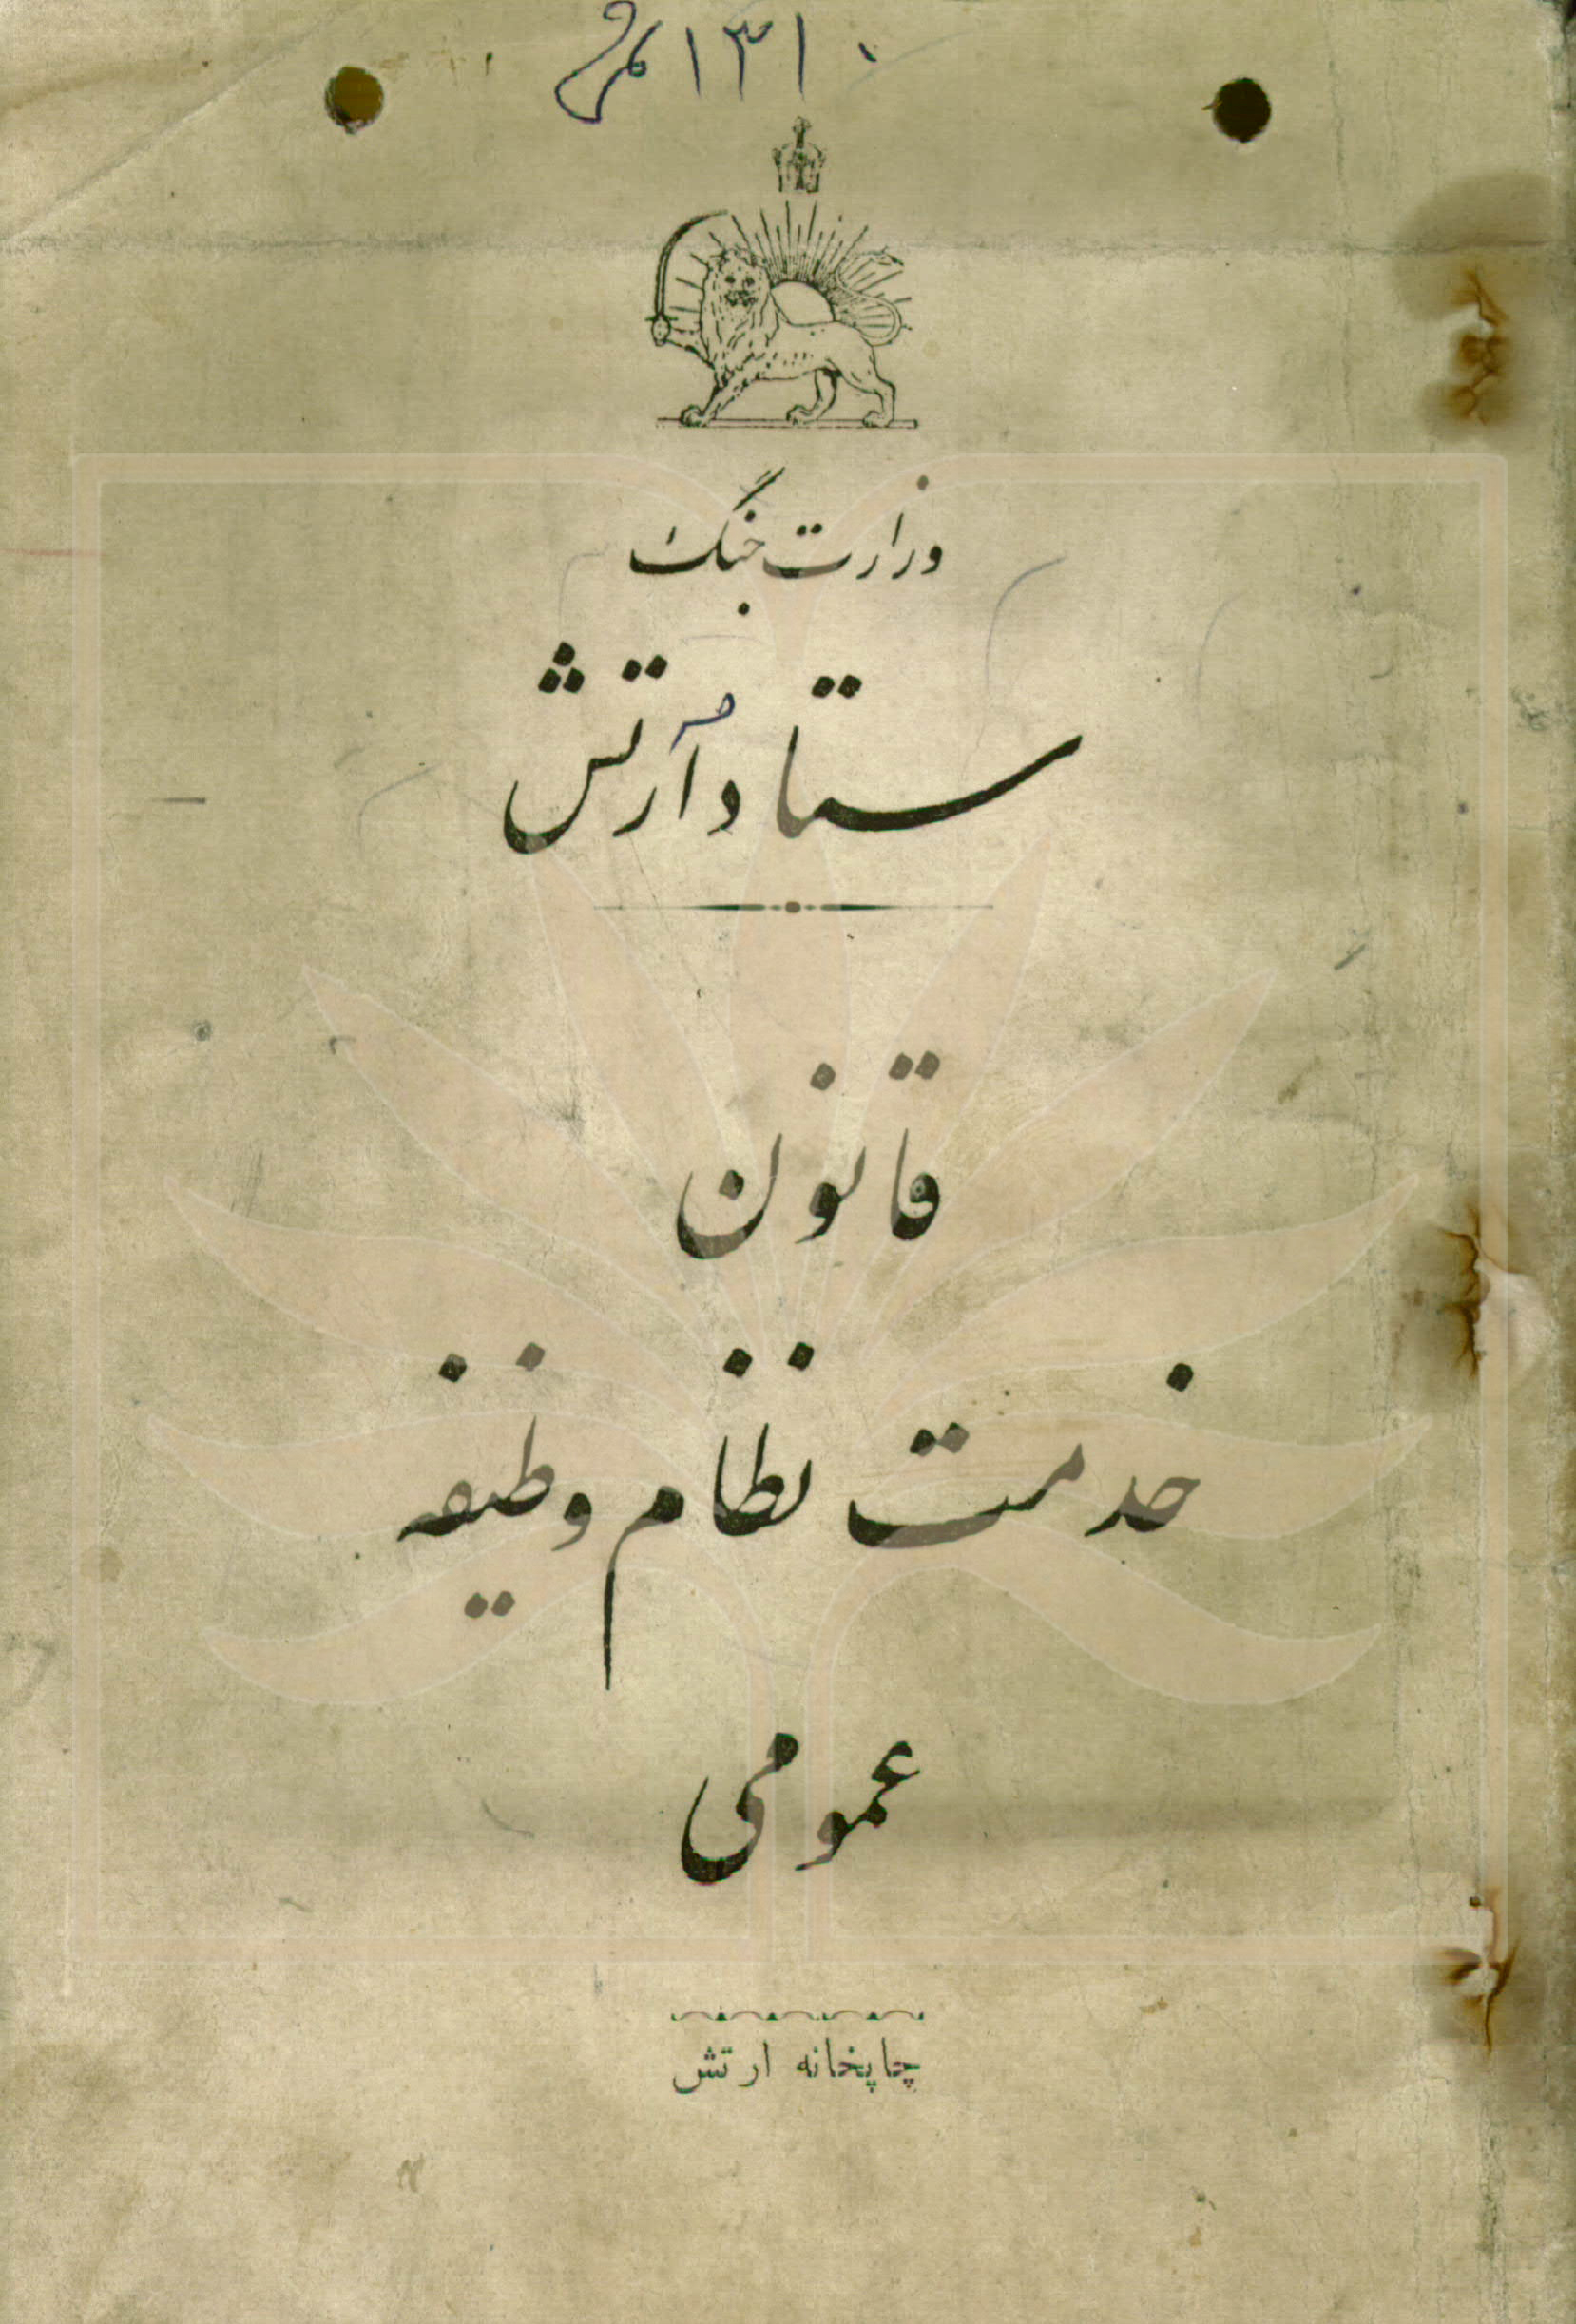 ۱۳۱۰
وزارت جنگ
ستاد ارتش
قانون
خدمت نظام وظیفه
عمومی
چاپخانه ارتش